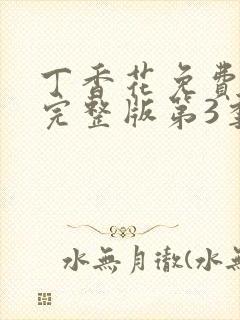 丁香花免费
完整版第3季
水無月徹(水無